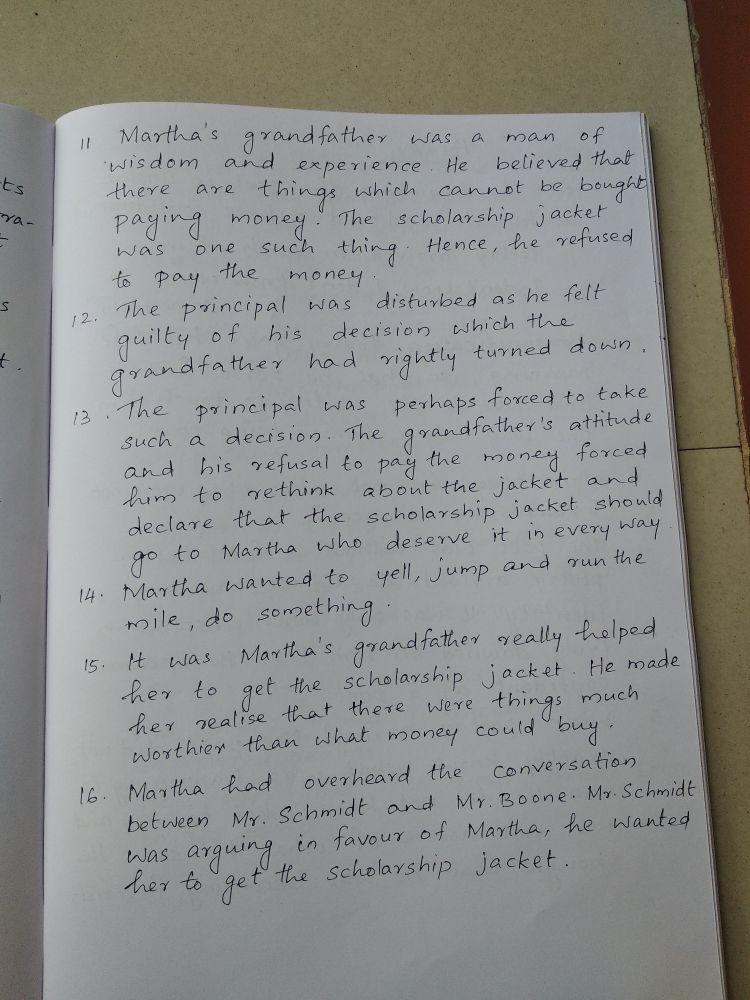 ts
ra-
t
s
t.
11 Martha's grandfather was a man of
wisdom and experience. He believed that
there are things which cannot be bought
paying money. The scholarship jacket
was one such thing. Hence, he refused
to pay the money.
12. The principal was disturbed as he felt
guilty of his decision which the
grandfather had rightly turned down.
13. The principal was perhaps forced to take
such a decision. The grandfather's attitude
and his refusal to pay the money forced
him to rethink about the jacket and
declare that the scholarship jacket should
go to Martha who deserve it in every way.
14. Martha wanted to yell, jump and run the
mile, do something.
15. It was Martha's grandfather really helped
her to get the scholarship jacket. He made
her realise that there were things much
worthier than what money could buy.
16. Martha had overheard the conversation
between Mr. Schmidt and Mr. Boone. Mr. Schmidt
was arguing in favour of Martha, he wanted
her to get the scholarship jacket.